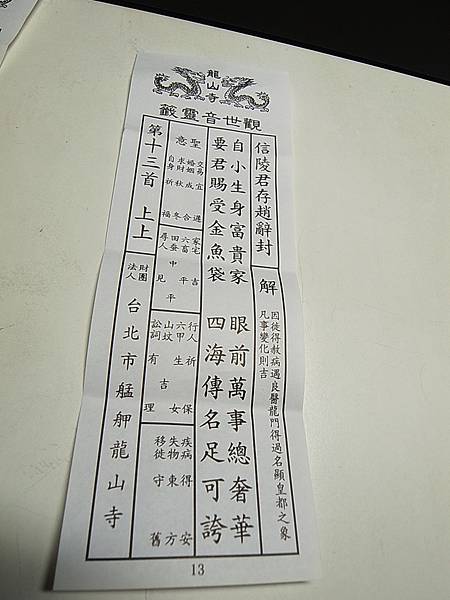 龍山寺
觀世音靈籤
信陵君存趙辭封
解
因徒得赦病遇良醫龍門得過名顯皇都之象
凡事變化則吉
自小生身富貴家 眼前萬事總奢華
要君賜受金魚袋 四海傳名足可誇
聖意
交易宜遲
婚姻成合
求財秋冬
自身祈福
家宅吉
六畜平
田蠶中平
尋人見
行人祈保
六甲生女
山墳吉
訟詞有理
疾病得安
失物東方
移徙守舊
第十三首 上上
財團法人 台北市艋舺龍山寺
13